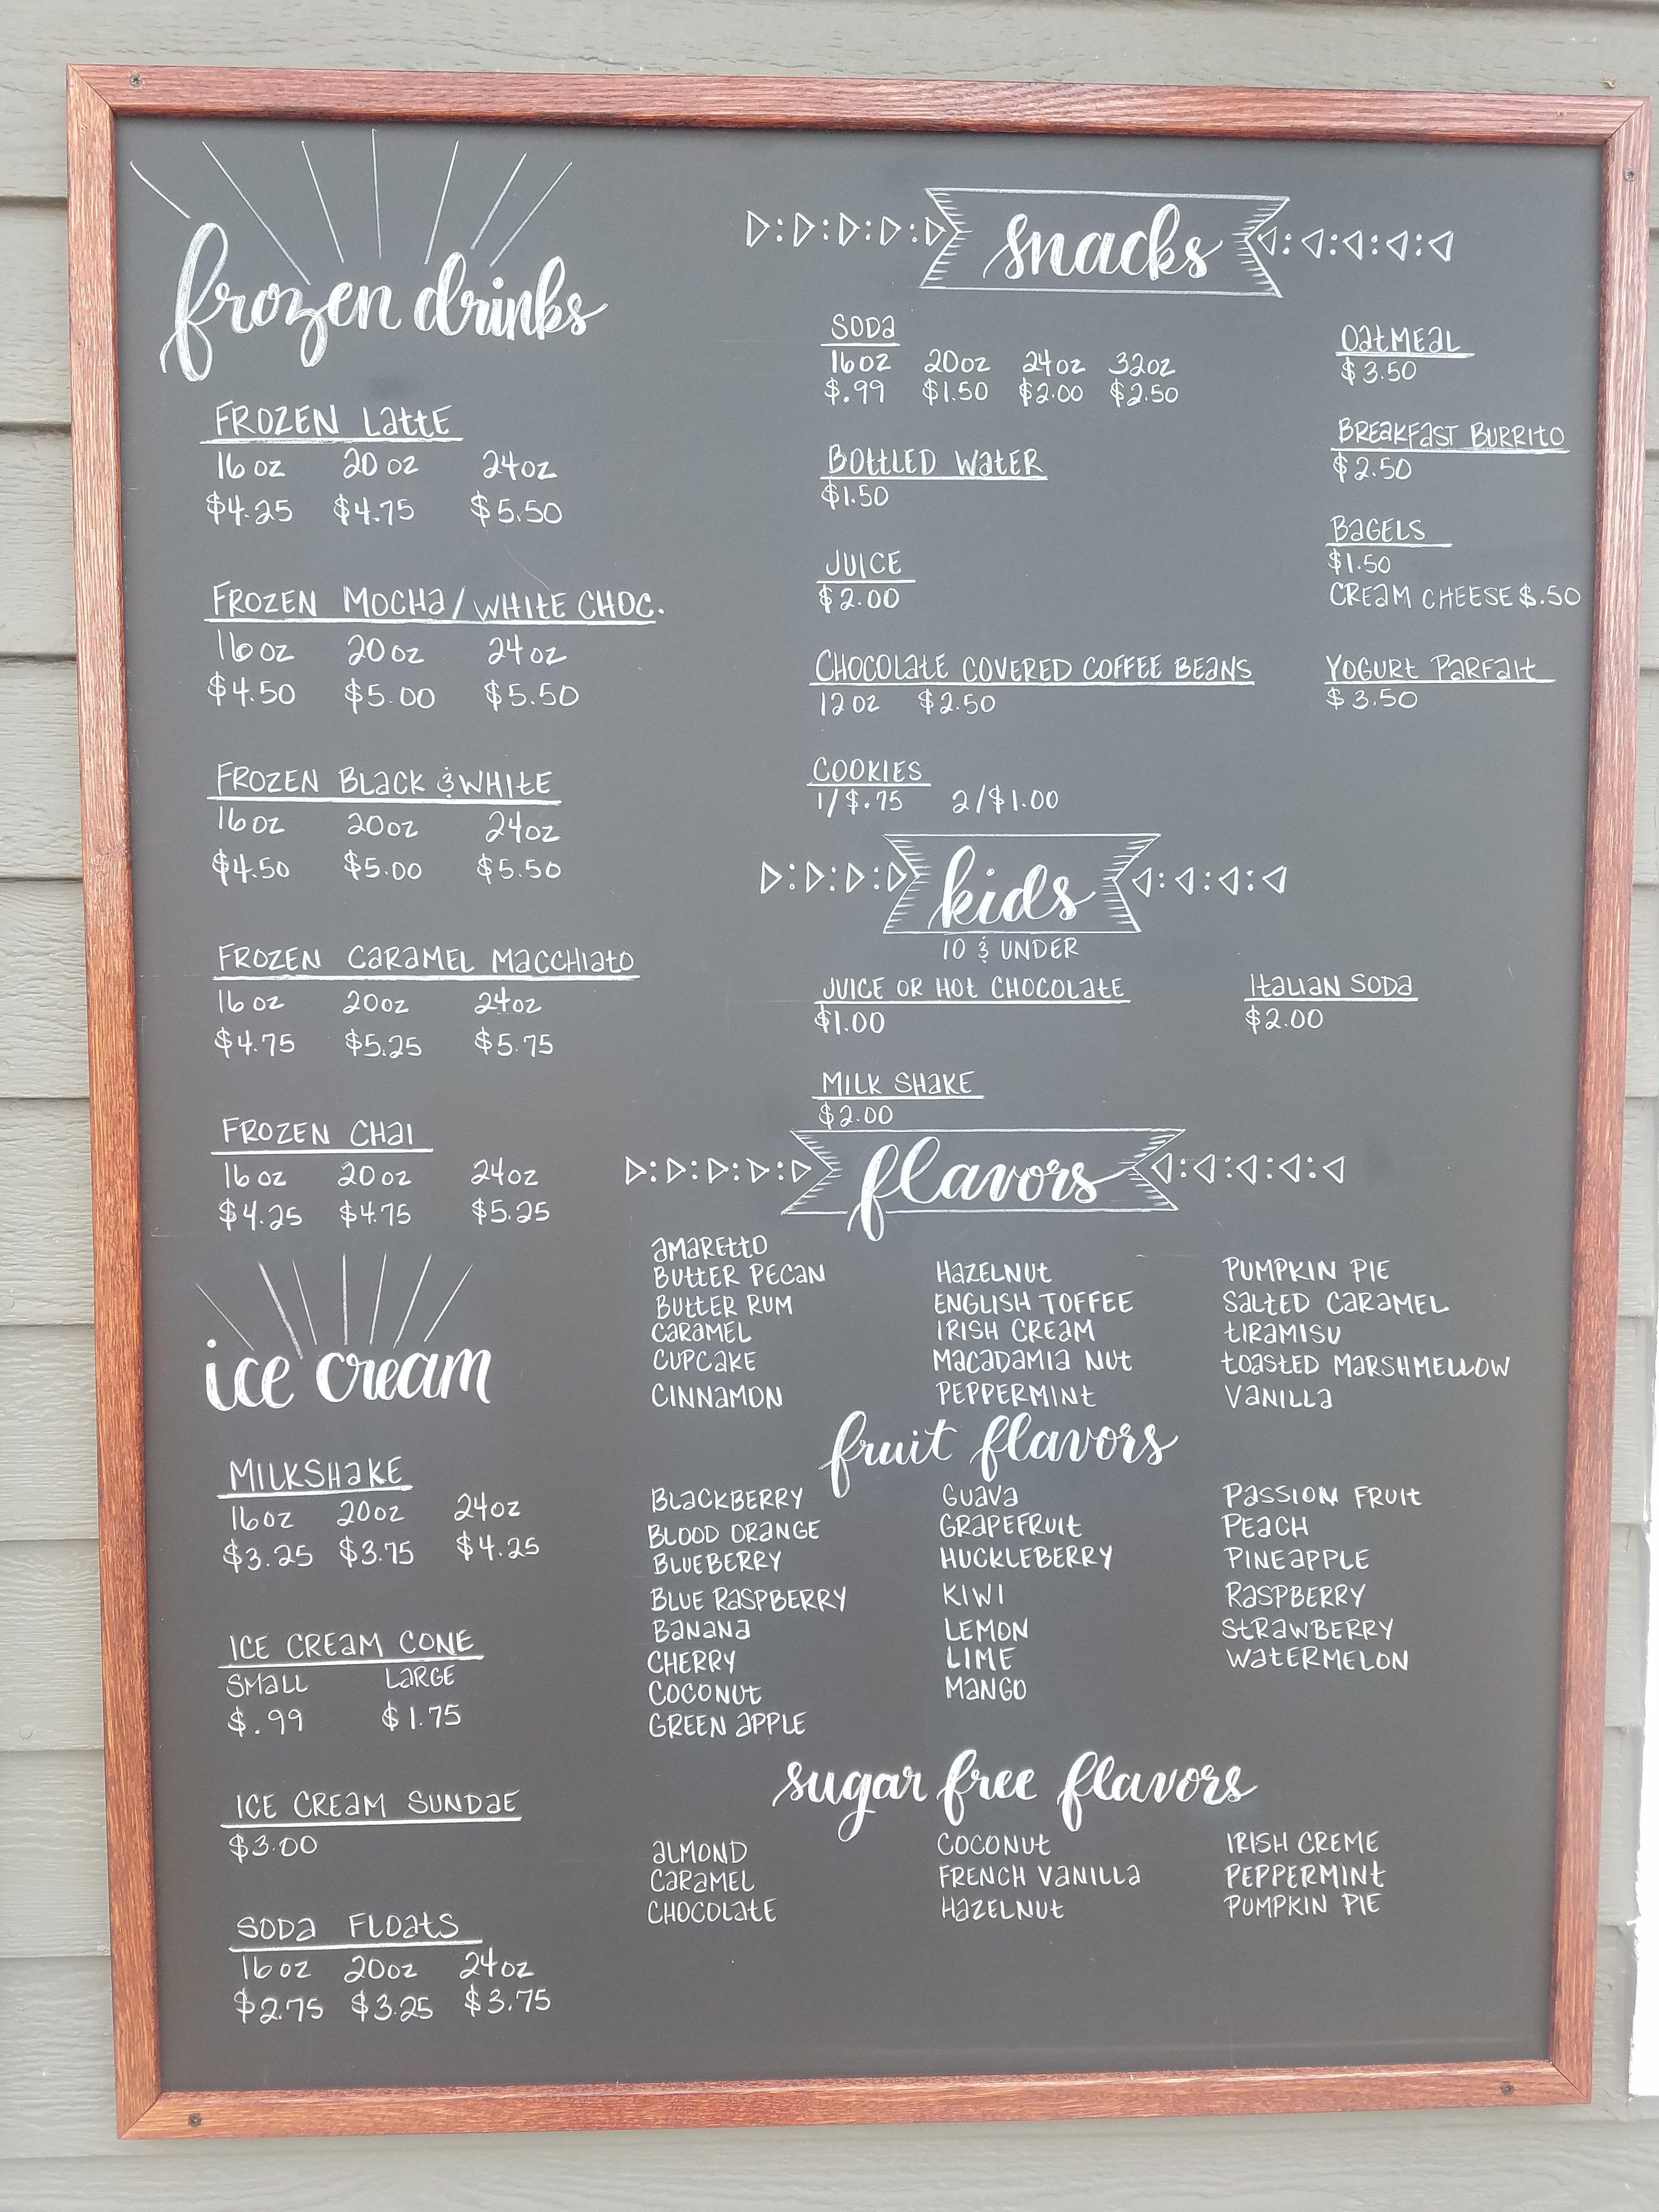 frozen drinks
FROZEN LattE
16 oz 20 oz 24oz
$4.25 $4.75 $5.50
FROZEN MOCHa / WHItE CHOC.
16 oz 20 oz 24 oz
$4.50 $5.00 $5.50
FROZEN BLACK & WHItE
16 oz 20oz 24oz
$4.50 $5.00 $5.50
FROZEN CaRaMEL MaCCHIatO
16 oz 20oz 24oz
$4.75 $5.25 $5.75
FROZEN CHaI
16 oz 20 oz 24oz
$4.25 $4.75 $5.25
ice cream
MILKSHaKE
16oz 20oz 24oz
$3.25 $3.75 $4.25
ICE CREaM CONE
SMaLL LaRGE
$.99 $1.75
ICE CREaM SUNDaE
$3.00
SODa FLOatS
16 oz 20oz 24oz
$2.75 $3.25 $3.75
snacks
SODa
16oz 20oz 24oz 32oz
$.99 $1.50 $2.00 $2.50
BOttLED WatER
$1.50
JUICE
$2.00
CHOCOLatE COVERED COFFEE BEaNS
12 oz $2.50
COOKIES
1/$.75 2/$1.00
OatMEaL
$3.50
BREaKFaSt BURRItO
$2.50
BaGELS
$1.50
CREaM CHEESE $.50
YOGURt PaRFaIt
$3.50
kids
10 & UNDER
JUICE OR HOt CHOCOLatE
$1.00
ItaLIaN SODa
$2.00
MILK SHaKE
$2.00
flavors
aMaREttO
BUttER PECaN
BUttER RUM
CaRaMEL
CUPCaKE
CINNaMON
HaZELNUt
ENGLISH TOFFEE
IRISH CREaM
MaCaDaMIa NUt
PEPPERMINt
PUMPKIN PIE
SaLtED CaRaMEL
tIRaMISU
tOaStED MaRSHMELLOW
VaNILLa
fruit flavors
BLaCKBERRY
BLOOD ORaNGE
BLUEBERRY
BLUE RaSPBERRY
BaNaNa
CHERRY
COCONUt
GREEN aPPLE
GUaVa
GRaPEFRUIt
HUCKLEBERRY
KIWI
LEMON
LIME
MaNGO
PaSSION FRUIt
PEaCH
PINEaPPLE
RaSPBERRY
StRaWBERRY
WatERMELON
sugar free flavors
aLMOND
CaRaMEL
CHOCOLatE
COCONUt
FRENCH VaNILLa
HaZELNUt
IRISH CREME
PEPPERMINt
PUMPKIN PIE